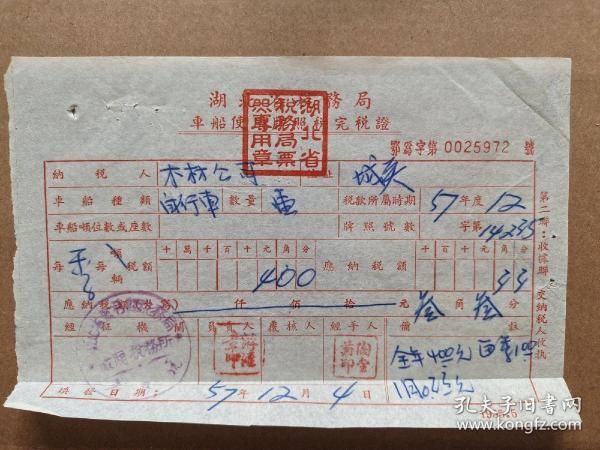 湖北省税務局
車船使用牌照税完税證
湖北省税務局票照專用章
鄂寫字第 0025972 號
納税人 木材公司 住址
車船種類 自行車 數量 壹 税款所屬時期 57年度12
車船噸位數或座數 牌照號數 字第14235
每 每 噸 輛 税額 十萬千百十元角分 400 應納税額 千百十元角分 33
應納税額 仟 佰 拾 元 叁角叁分
經征機關 負責人 覆核人 經手人 備註
全年400元
填發日期: 57年12月4日
第二聯:收據聯 交納税人收執
孔夫子旧书网
kongfz.com